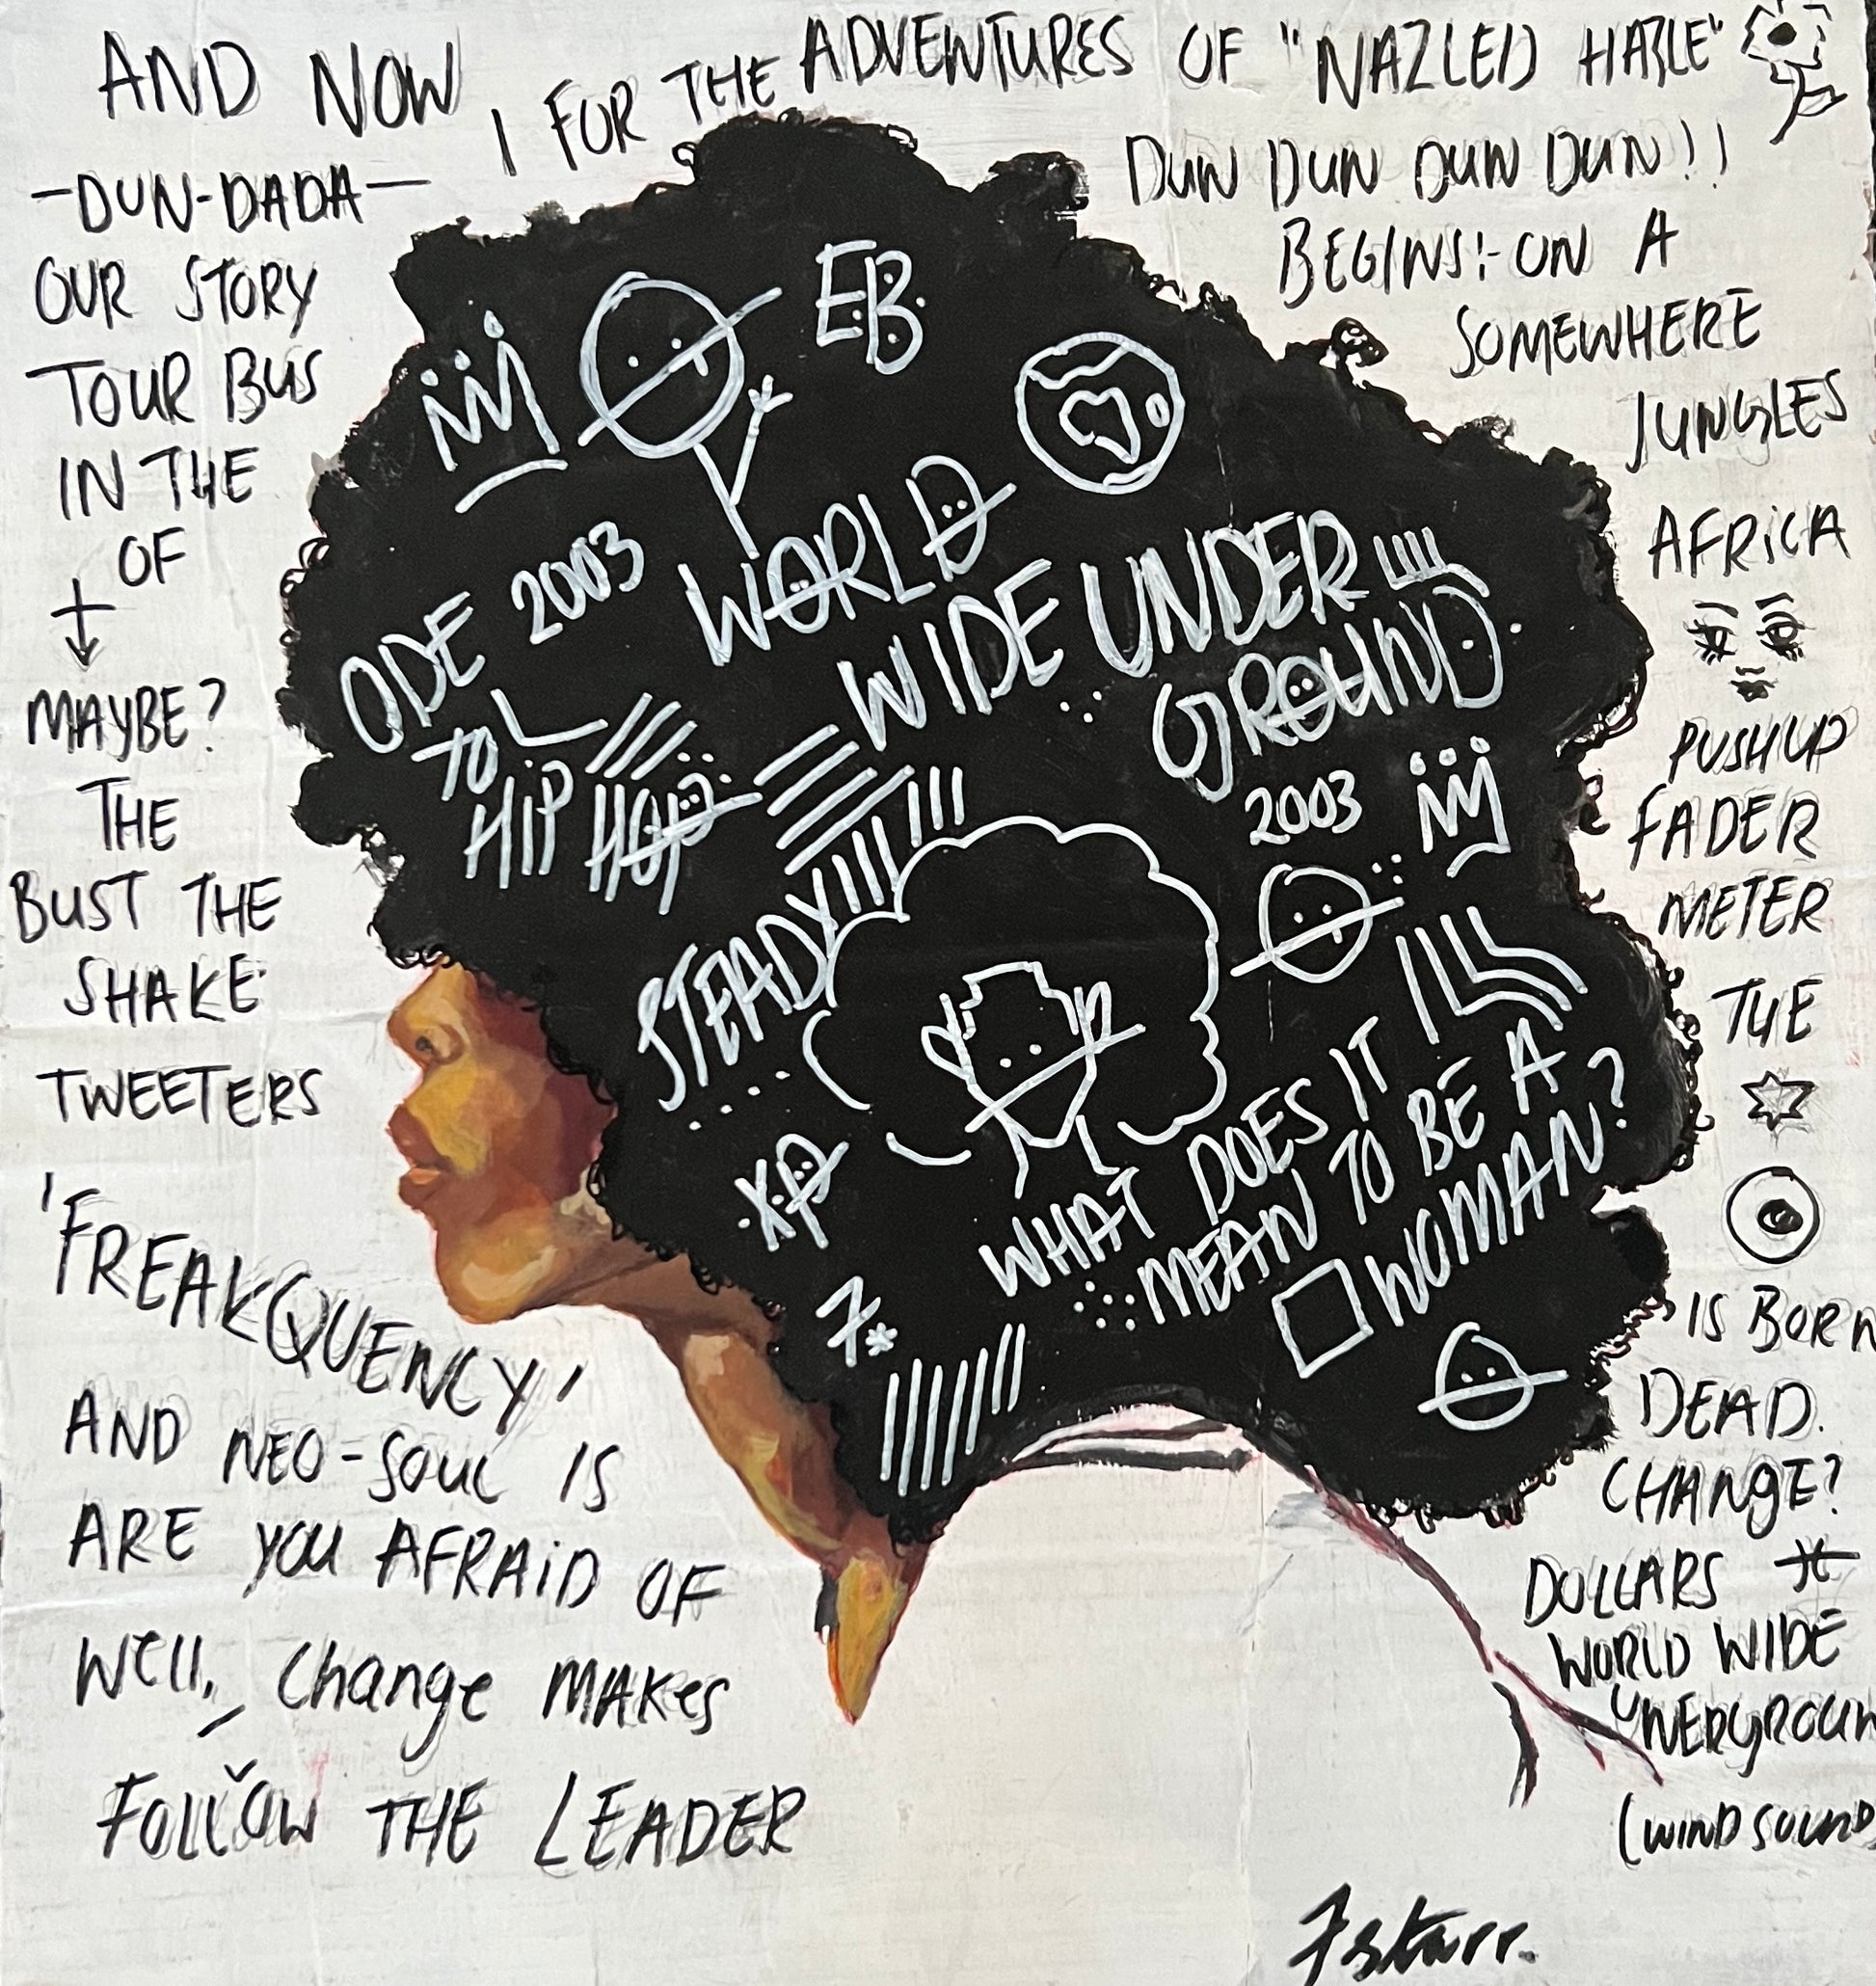 AND NOW
I FOR THE ADVENTURES OF "NAZLED HAZLE"
-DUN-DADA-
DUN DUN DUN DUN!!
OUR STORY
BEGINS:-ON A
TOUR BUS
SOMEWHERE
IN THE
JUNGLES
OF
AFRiCA
MAYBE?
PUSHUP
THE
FADER
BUST THE
METER
SHAKE
THE
TWEETERS
'FREAKQUENCY'
IS BORN
AND NEO-SOUL IS
DEAD.
ARE YOU AFRAiD OF
CHANgE?
Well, Change MAKes
DOLLARS
WORLD WIDE
UNERGROUN
FOLLOW THE LEADER
(WIND SOUND
EB
ODE 2003
TO
HiP HOP
WORLD
WIDE UNDER
GROUND
2003
STEADY
XP
7*
WHAT DOES IT
MEAN TO BE A
WOMAN?
7starr.